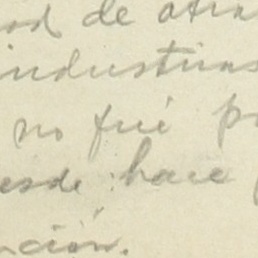 ad de otra
industrias
no fué p
esde hace
nción.